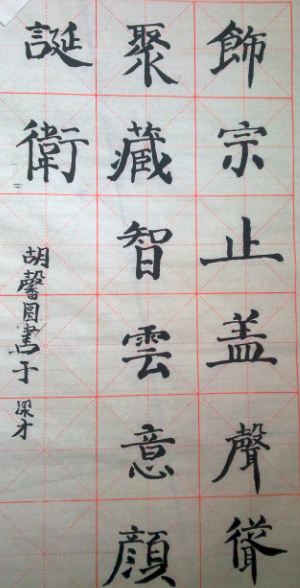 飾宗止盖聲
聚藏智雲意顔
誕衛
胡馨圓書于梁才